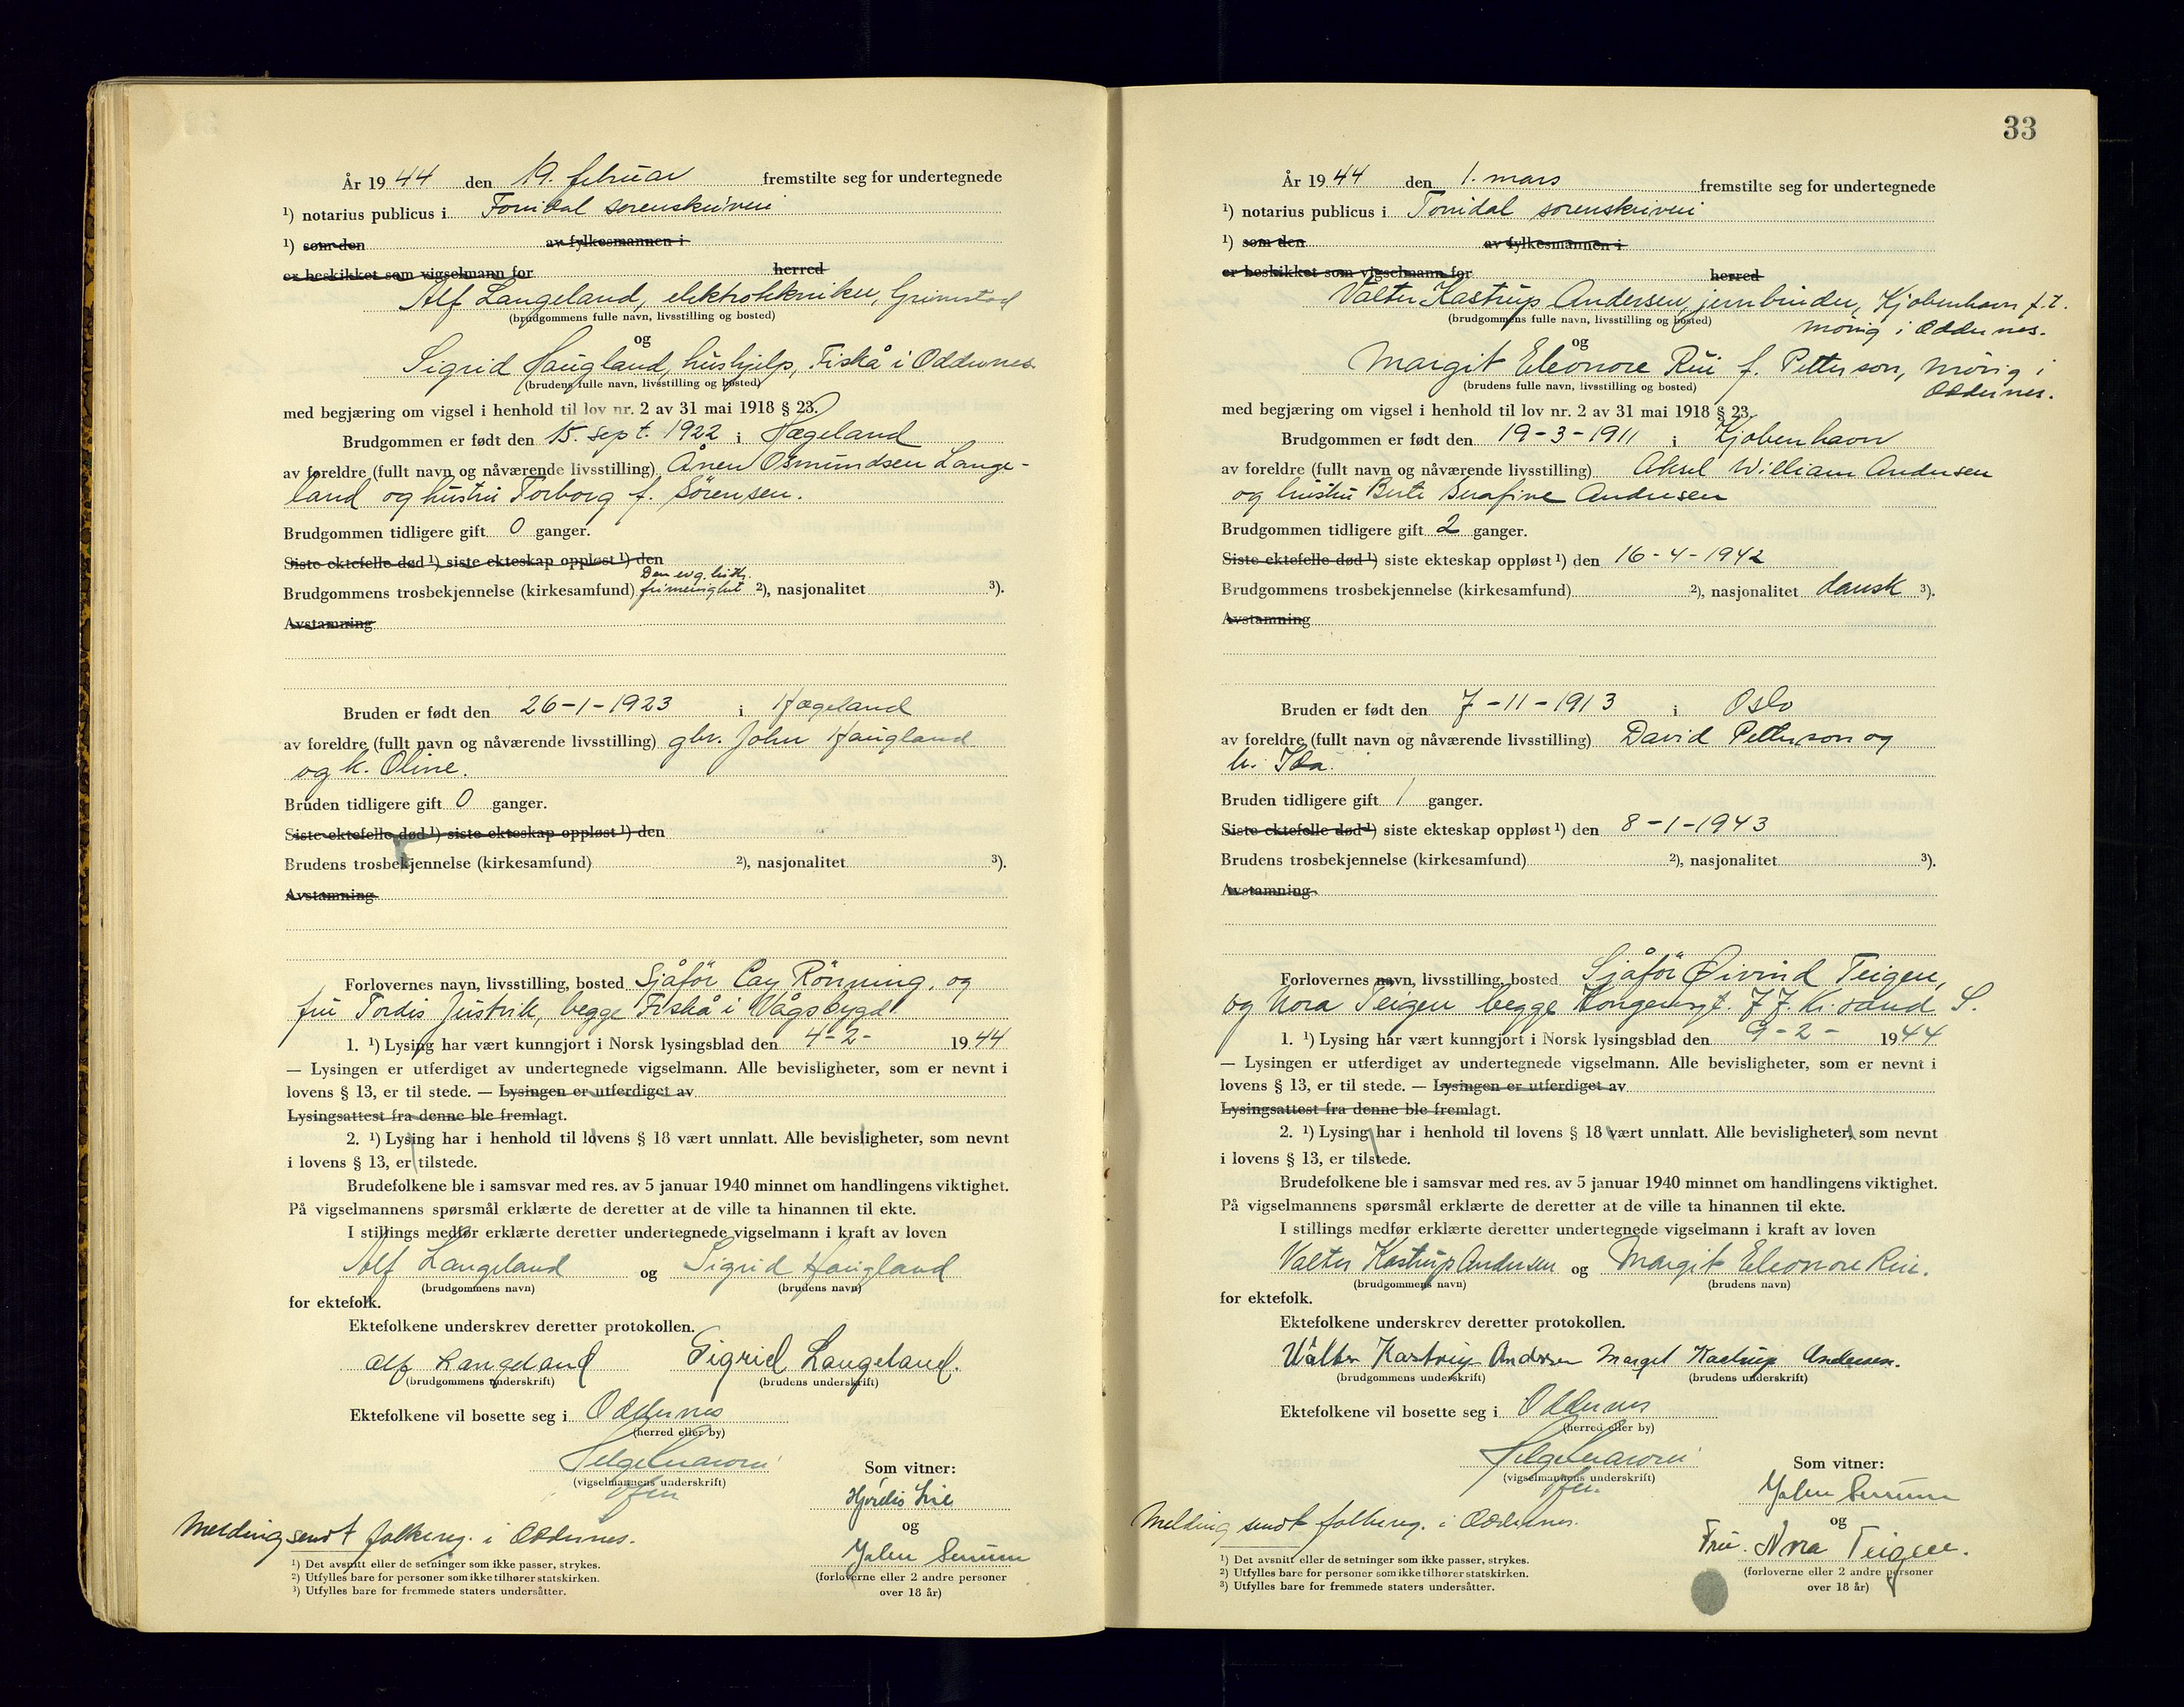 År 1944 den 19. februar fremstilte seg for undertegnede
¹) notarius publicus i Torridal sorenskriveri
¹) som den av fylkesmannen i
er beskikket som vigselmann for herred
Alf Langeland, elektrotekniker, Grimstad
(brudgommens fulle navn, livsstilling og bosted)
og
Sigrid Haugland, hushjelp, Fiskå i Oddernes
(brudens fulle navn, livsstilling og bosted)
med begjæring om vigsel i henhold til lov nr. 2 av 31 mai 1918 § 23.
Brudgommen er født den 15. sept. 1922 i Hægeland
av foreldre (fullt navn og nåværende livsstilling) Ånen Osmundsen Lange-
land og hustru Torborg f. Sørensen.
Brudgommen tidligere gift 0 ganger.
Siste ektefelle død ¹) siste ekteskap oppløst ¹) den
Den evg. luth.
Brudgommens trosbekjennelse (kirkesamfund) frimenighet ²), nasjonalitet ³).
Avstamning
Bruden er født den 26-1-1923 i Hægeland
av foreldre (fullt navn og nåværende livsstilling) gbr. John Haugland
og h. Oline.
Bruden tidligere gift 0 ganger.
Siste ektefelle død ¹) siste ekteskap oppløst ¹) den
Brudens trosbekjennelse (kirkesamfund) ²), nasjonalitet ³).
Avstamning
Forlovernes navn, livsstilling, bosted Sjåför Cay Rönning, og
fru Tordis Justvik, begge Fiskå i Vågsbygd
1. ¹) Lysing har vært kunngjort i Norsk lysingsblad den 4-2- 1944
— Lysingen er utferdiget av undertegnede vigselmann. Alle bevisligheter, som er nevnt i
lovens § 13, er til stede. — Lysingen er utferdiget av
Lysingsattest fra denne ble fremlagt.
2. ¹) Lysing har i henhold til lovens § 18 vært unnlatt. Alle bevisligheter, som nevnt
i lovens § 13, er tilstede.
Brudefolkene ble i samsvar med res. av 5 januar 1940 minnet om handlingens viktighet.
På vigselmannens spørsmål erklærte de deretter at de ville ta hinannen til ekte.
I stillings medfør erklærte deretter undertegnede vigselmann i kraft av loven
Alf Langeland og Sigrid Haugland
(brudgommens navn) (brudens navn)
for ektefolk.
Ektefolkene underskrev deretter protokollen.
Alf Langeland Sigrid Langeland.
(brudgommens underskrift) (brudens underskrift)
Ektefolkene vil bosette seg i Oddernes
(herred eller by)
Som vitner:
(vigselmannens underskrift)
Hjördis Lie
og
Melding sendt folkereg. i Oddernes.
¹) Det avsnitt eller de setninger som ikke passer, strykes.
²) Utfylles bare for personer som ikke tilhører statskirken.
³) Utfylles bare for fremmede staters undersåtter.
(forloverne eller 2 andre personer
over 18 år)
33
År 1944 den 1. mars fremstilte seg for undertegnede
¹) notarius publicus i Torridal sorenskriveri
¹) som den av fylkesmannen i
er beskikket som vigselmann for herred
Valter Kastrup Andersen, jernbinder, Kjøbenhavn f.t.
(brudgommens fulle navn, livsstilling og bosted)
Mörig i Oddernes.
og
Margit Eleonore Rui f. Petterson, Mörig i
(brudens fulle navn, livsstilling og bosted)
Oddernes.
med begjæring om vigsel i henhold til lov nr. 2 av 31 mai 1918 § 23.
Brudgommen er født den 19-3-1911 i Kjøbenhavn
av foreldre (fullt navn og nåværende livsstilling) Aksel William Andersen
og hustru Berte Serafine Andersen
Brudgommen tidligere gift 2 ganger.
Siste ektefelle død ¹) siste ekteskap oppløst ¹) den 16-4-1942
Brudgommens trosbekjennelse (kirkesamfund) ²), nasjonalitet dansk ³).
Avstamning
Bruden er født den 7-11-1913 i Oslo
av foreldre (fullt navn og nåværende livsstilling) David Petterson og
h. Ida.
Bruden tidligere gift 1 ganger.
Siste ektefelle død ¹) siste ekteskap oppløst ¹) den 8-1-1943
Brudens trosbekjennelse (kirkesamfund) ²), nasjonalitet ³).
Avstamning
Forlovernes navn, livsstilling, bosted Sjåför Øivind Teigen,
og Nora Teigen begge Kongensgt. 77. Kr.sand S.
1. ¹) Lysing har vært kunngjort i Norsk lysingsblad den 9-2- 1944
— Lysingen er utferdiget av undertegnede vigselmann. Alle bevisligheter, som er nevnt i
lovens § 13, er til stede. — Lysingen er utferdiget av
Lysingsattest fra denne ble fremlagt.
2. ¹) Lysing har i henhold til lovens § 18 vært unnlatt. Alle bevisligheter, som nevnt
i lovens § 13, er tilstede.
Brudefolkene ble i samsvar med res. av 5 januar 1940 minnet om handlingens viktighet.
På vigselmannens spørsmål erklærte de deretter at de ville ta hinannen til ekte.
I stillings medfør erklærte deretter undertegnede vigselmann i kraft av loven
Valter Kastrup Andersen og Margit Eleonore Rui.
(brudgommens navn) (brudens navn)
for ektefolk.
Ektefolkene underskrev deretter protokollen.
Walter Kastrup Andersen Margit Kastrup Andersen.
(brudgommens underskrift) (brudens underskrift)
Ektefolkene vil bosette seg i Oddernes
(herred eller by)
Som vitner:
(vigselmannens underskrift)
og
Melding sendt folkereg. i Oddernes.
Fru. Nora Teigen.
¹) Det avsnitt eller de setninger som ikke passer, strykes.
²) Utfylles bare for personer som ikke tilhører statskirken.
³) Utfylles bare for fremmede staters undersåtter.
(forloverne eller 2 andre personer
over 18 år)